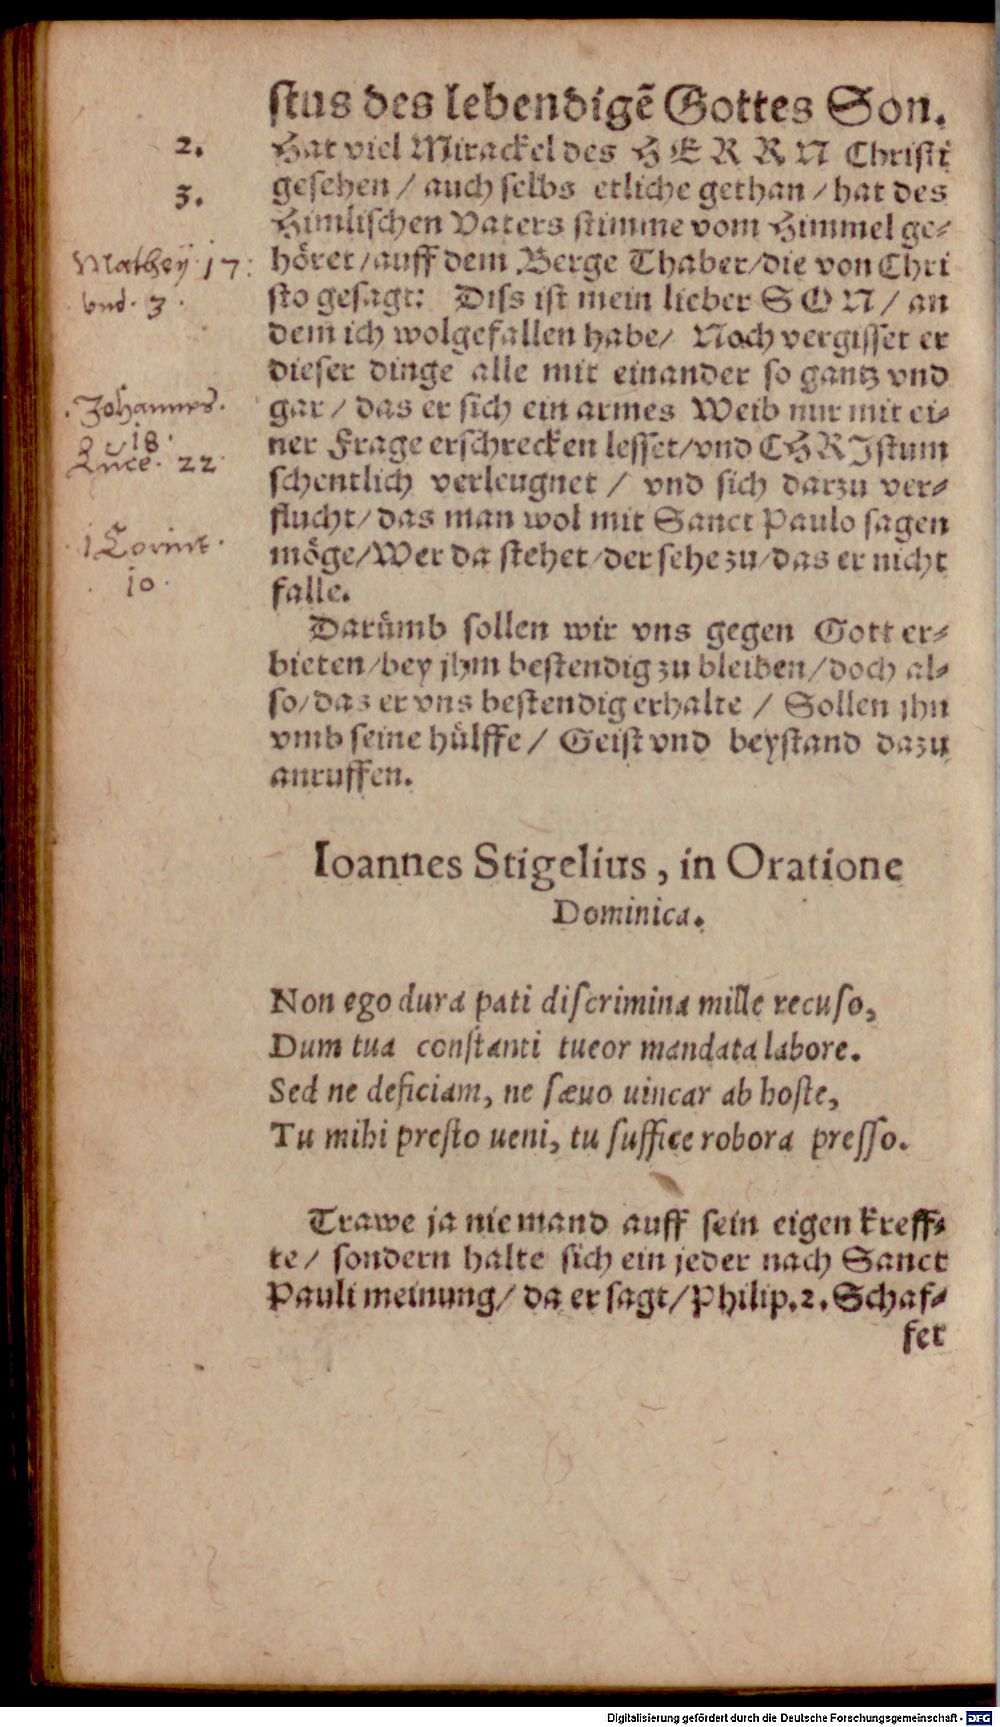 stus des lebendigē Gottes Son.
2. Hat viel Mirackel des HERRN Christi
3. gesehen / auch selbs etliche gethan / hat des
Himlischen Vaters stimme vom Himmel ge-
Mathey 17: höret / auff dem Berge Thaber / die von Chri
vnd. 3. sto gesagt: Diss ist mein lieber SON / an
dem ich wolgefallen habe / Noch vergisset er
dieser dinge alle mit einander so gantz vnd
Johannes. gar / das er sich ein armes Weib nur mit ei-
18. ner Frage erschrecken lesset / vnd CHRIstum
Luce. 22 schentlich verleugnet / vnd sich darzu ver-
flucht / das man wol mit Sanct Paulo sagen
1 Corint. möge / Wer da stehet / der sehe zu / das er nicht
10. falle.
Darümb sollen wir vns gegen Gott er-
bieten / bey jhm bestendig zu bleiben / doch al-
so / das er vns bestendig erhalte / Sollen jhn
vmb seine hülffe / Geist vnd beystand dazu
anruffen.
Ioannes Stigelius, in Oratione
Dominica.
Non ego dura pati discrimina mille recuso,
Dum tua constanti tueor mandata labore.
Sed ne deficiam, ne sæuo uincar ab hoste,
Tu mihi presto ueni, tu suffice robora presso.
Trawe ja niemand auff sein eigen kreff-
te / sondern halte sich ein jeder nach Sanct
Pauli meinung / da er sagt / Philip. 2. Schaf-
fet
Digitalisierung gefördert durch die Deutsche Forschungsgemeinschaft - DFG